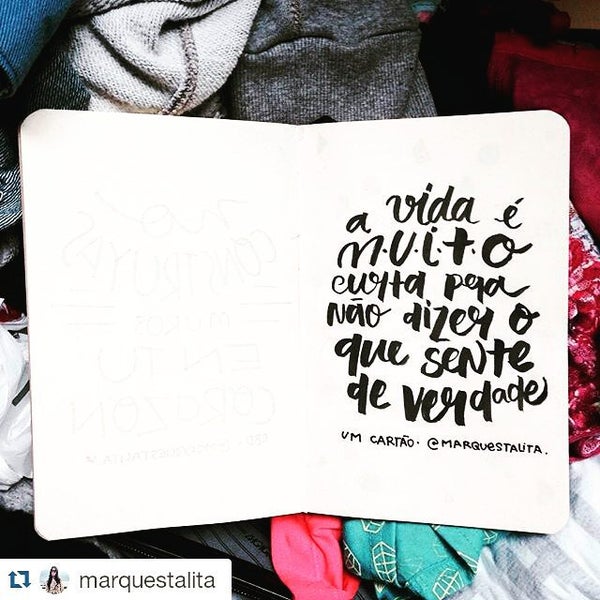 a vida é
M.U.I.T.O
curta pra
não dizer o
que sente
de verdade
UM CARTÃO. @MARQUESTALITA.
marquestalita